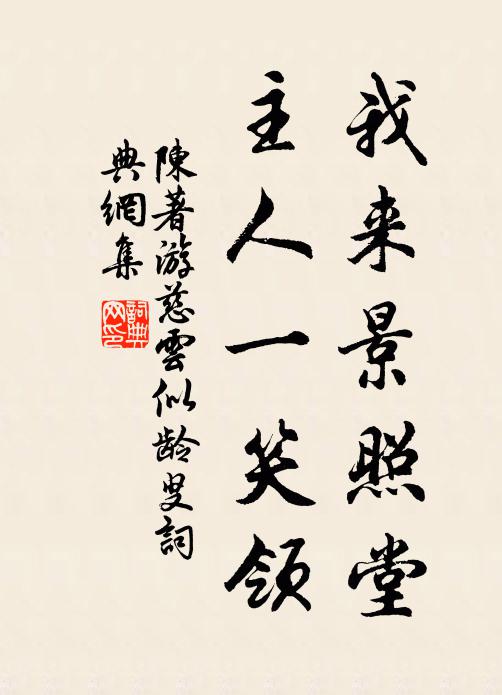 我来景照堂
主人一笑領
陳著游慈雲似龄叟詞
典網集
詞典网印